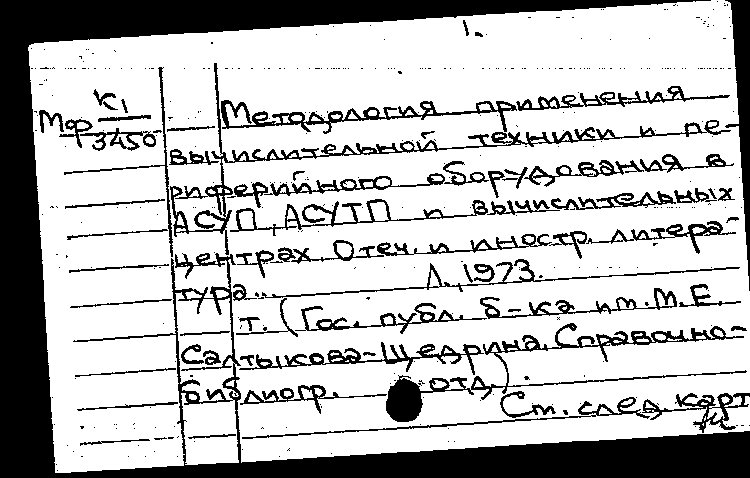 1.
К1
Мфр 3450
Методология применения
вычислительной техники и пе-
риферийного оборудования в
АСУП, АСУТП и вычислительных
центрах. Отеч. и иностр. литера-
тура... Л., 1973.
т. (Гос. публ. б-ка им. М.Е.
Салтыкова-Щедрина. Справочно-
библиогр. отд.).
См. след. карт